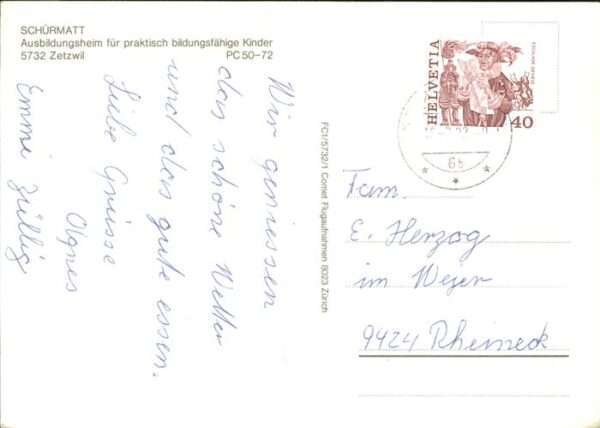 SCHÜRMATT
Ausbildungsheim für praktisch bildungsfähige Kinder
5732 Zetzwil PC 50-72
Wir geniessen
das schöne Wetter
und das gute essen.
Liebe Grüsse
Agnes
Emmi Züllig
FC1/5732/1 Comet Flugaufnahmen 8023 Zürich
HELVETIA
40
6b
Fam.
E. Herzog
im Weier
9424 Rheineck